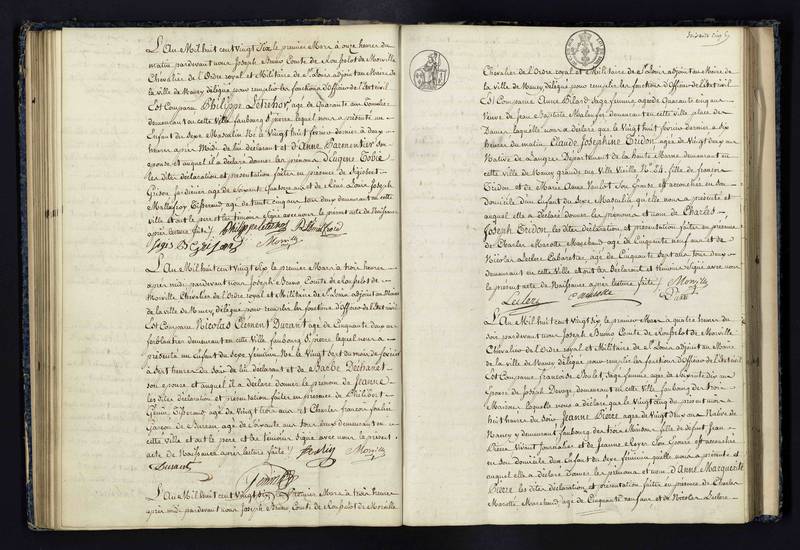 L'An Mil huit cent Vingt Six le premier Mars à onze heures du
matin pardevant nous Joseph Bruno Comte de Rousselot de Morville
Chevalier de l'Ordre royal et Militaire de St Louis adjoint au Maire de
la ville de Nancy délégué pour remplir les fonctions d'Officier de l'Etat civil
Est Comparu Philippe Létrehor, agé de Quarante ans
demeurant en cette Ville faubourg St pierre lequel nous a présenté un
Enfant du Sexe Masculin Né le Vingt huit février dernier à deux
heures après Midi de lui déclarant et d'Anne Parmentier Son
épouse et auquel il a déclaré donner les prénoms d'Eugene Tobie
les dites déclaration et présentation faites en présence de Sigisbert
Grison Jardinier agé de Soixante Quatorze ans et de Rémi Louis Joseph
agé de trente cinq ans tous deux demeurant en cette
ville et ont le père et les témoins Signé avec nous le présent acte de Naissance
après lecture faite /.
Morville
L'An Mil huit cent Vingt Six le premier Mars à trois heures
après midi pardevant nous Joseph Bruno Comte de Rousselot de
Morville Chevalier de l'Ordre royal et Militaire de St Louis adjoint au Maire
de la ville de Nancy, délégué pour remplir les fonctions d'Officier de l'Etat civil
Est Comparu Nicolas Clément Durant agé de Cinquante deux ans
ferblantier demeurant en cette Ville faubourg St pierre lequel nous a
présenté un Enfant du Sexe féminin Né le Vingt Sept du mois de février
à Sept heures du Soir de lui déclarant et de Barbe Déchanet
Son épouse et auquel il a déclaré donner le prénom de Jeanne
les dites déclaration et présentation faites en présence de Philibert
Génin Tisserand agé de Vingt trois ans et Charles françois
Garçon de Bureau agé de Soixante ans tous deux demeurant en
cette Ville et ont le père et les témoins Signé avec nous le présent
acte de Naissance après lecture faite /. Morville
Durant
Genin
L'An Mil huit cent Vingt Six le premier Mars à trois heures
après midi pardevant nous Joseph Bruno Comte de Rousselot de Morville
Chevalier de l'Ordre royal et Militaire de St Louis adjoint au Maire de
la ville de Nancy délégué pour remplir les fonctions d'Officier de l'Etat civil
Est Comparue Anne Pilard Sage femme agée de Quarante cinq ans
Veuve de Jean Baptiste demeurant en cette ville place des
Dames laquelle nous a déclaré que le Vingt huit février dernier à dix
heures du matin Claude Josephine Tridon agée de Vingt deux ans
Native de Langres Département de la haute Marne demeurant en
cette ville de Nancy grande rue Ville Vieille No 24, fille de françois
Tridon et de Marie Anne Son épouse est accouchée en son
domicile d'un Enfant du Sexe Masculin qu'elle nous a présenté et
auquel elle a déclaré donner les prénoms et nom de Charles
Joseph Tridon, les dites déclaration et présentation faites en présence
de Charles Marotte Marchand agé de Cinquante neuf ans et de
Nicolas Leclerc Cabaretier, agé de Cinquante Sept ans tous deux
demeurant en cette Ville et ont les déclarant et témoins Signé avec nous
le présent acte de Naissance après lecture faite /. Morville
Leclerc Marotte
L'An Mil huit cent Vingt Six le premier Mars à quatre heures du
Soir pardevant nous Joseph Bruno Comte de Rousselot de Morville
Chevalier de l'Ordre royal et Militaire de St Louis adjoint au Maire de
la ville de Nancy délégué pour remplir les fonctions d'Officier de l'Etat civil
Est Comparue françoise Poulet Sage femme agée de Soixante dix ans
épouse de Joseph demeurant en cette Ville, faubourg des trois
Maisons laquelle nous a déclaré que le Vingt cinq du présent mois à
huit heures du Soir Jeanne Pierre agée de Vingt deux ans Native de
Nancy y demeurant faubourg des trois Maisons fille de défunt Jean
Pierre Vivant Journalier et de Jeanne Royer Son épouse est accouchée
en son domicile d'un Enfant du Sexe féminin qu'elle nous a présenté et
auquel elle a déclaré donner les prénoms et nom d'Anne Marguerite
Pierre les dites déclaration et présentation faites en présence de Charles
Marotte Marchand, agé de Cinquante neuf ans et de Nicolas Leclerc